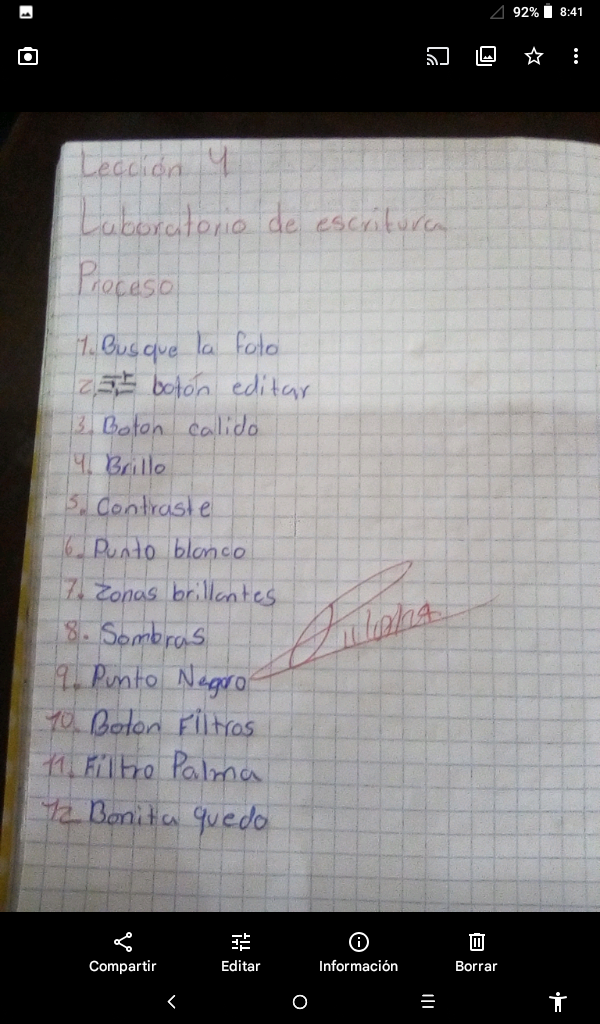 92% 8:41
Lección 4
Laboratorio de escritura
Proceso
1. Busque la foto
2. botón editar
3. Boton calido
4. Brillo
5. Contraste
6. Punto blanco
7. Zonas brillantes
8. Sombras
9. Punto Negro
10. Boton Filtros
11. Filtro Palma
12 Bonita quedo
Compartir Editar Información Borrar